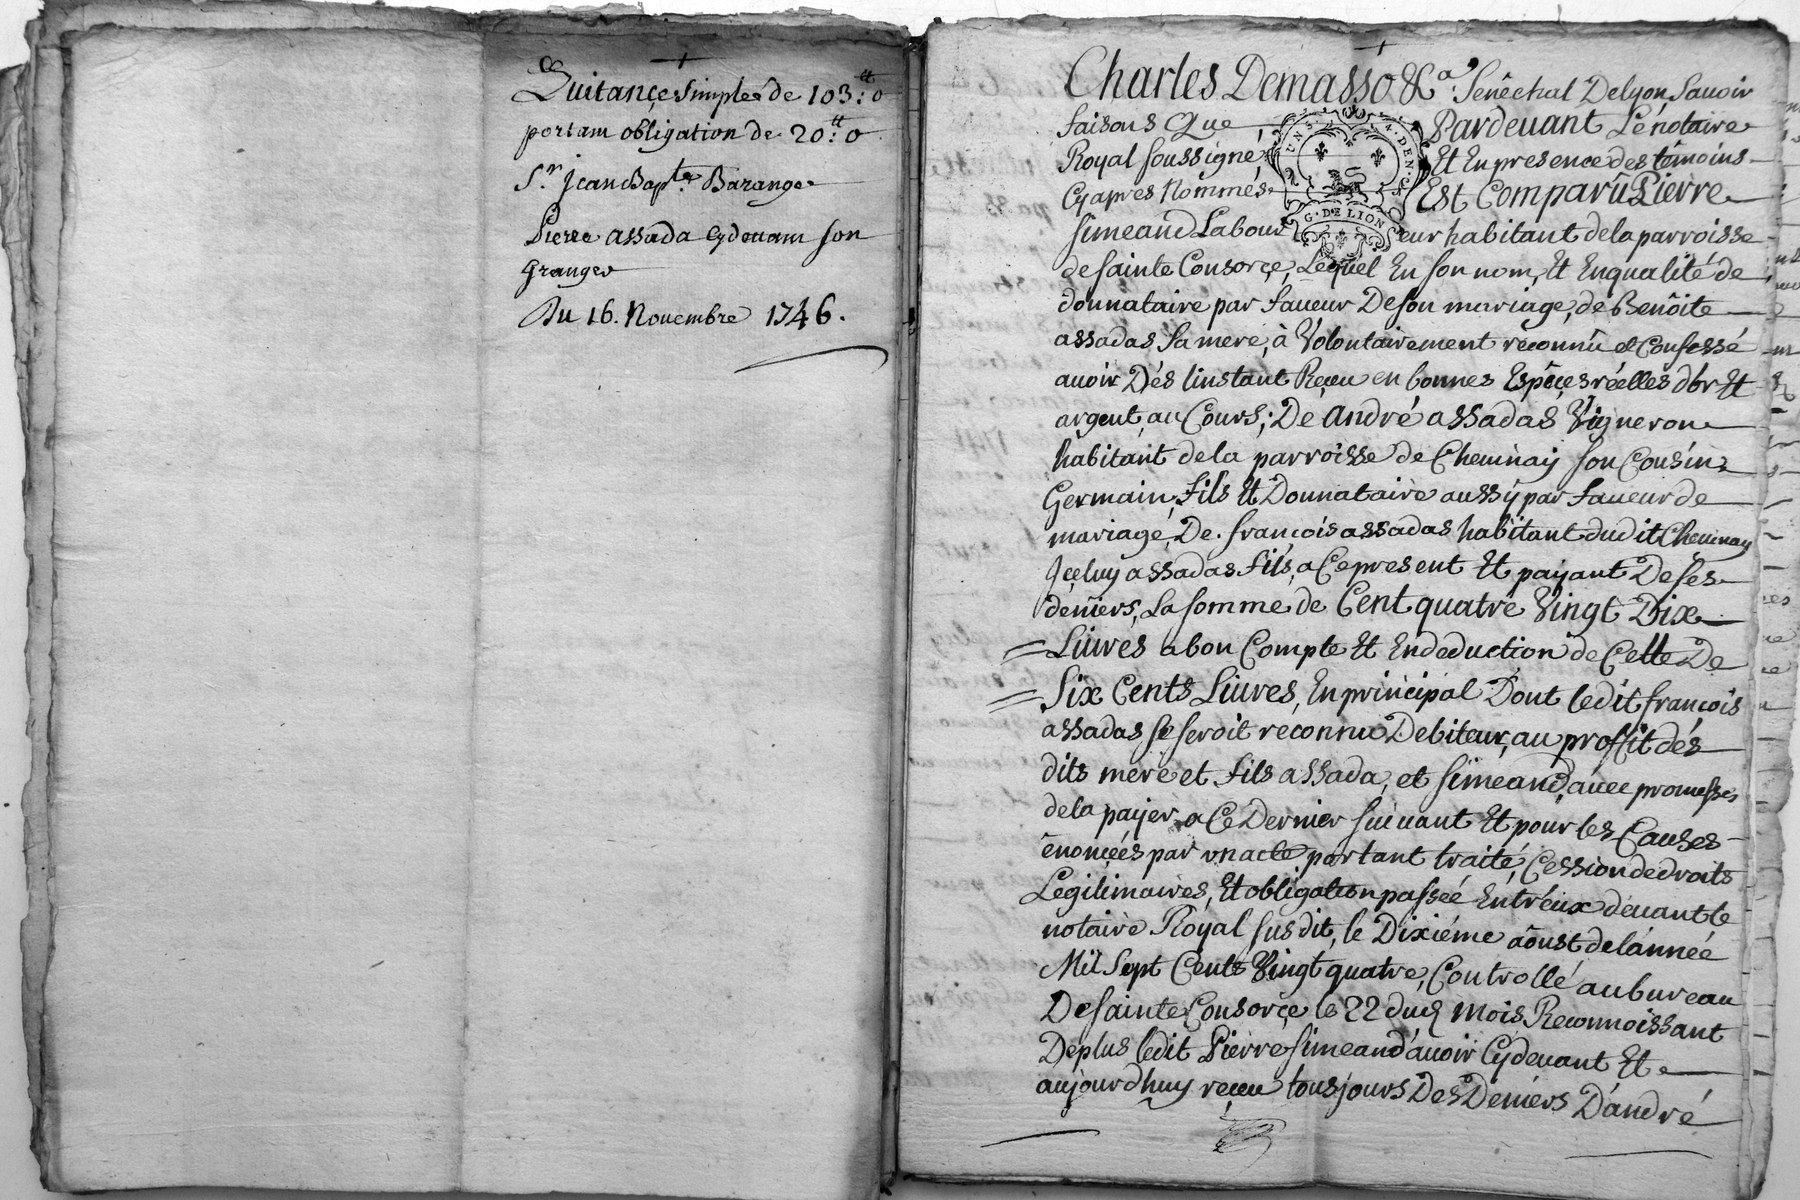 +
Quitançe simple de 103:tt 0
portant obligation de 20:tt 0
S.r Jean Bap.te Barange
Pierre assada cydevant son
Granger
Du 16. Novembre 1746.
+
Charles Demasso &a. Senêchal Delyon Savoir
faisons Que Pardevant Le notaire
Royal soussigné Et En presence des têmoins
Cyapres Nommés Est Comparû Pierre
G. DE LION
simeand Laboureur habitant dela parroisse
de sainte Consorçe, Lequel En son nom, Et Enqualité de
donnataire par faveur Deson mariage, de Benôite
assadas sa mere, à Volontairement reconnû et Confessé
avoir Dés linstant Reçeu en bonnes Espêçes réelles d'or Et
argent, au Cours; De andré assadas Vigneron
habitant dela parroisse de Chevinay son Cousin
Germain, fils Et Donnataire aussy par faveur de
mariage, De françois assadas habitant dudit Chevinay
Içeluy assadas fils, a Ce present Et payant De ses
deniers, La somme de Cent quatre Vingt Dix
Livres a bon Compte Et En deduction de Celle De
Six Cents Livres, En principal Dont ledit françois
assadas se seroit reconnu Debiteur, au proffit dés
dits mere et fils assada, et simeand, avec promesses
dela payer a Ce Dernier suivant Et pour les Causes
énonçéés par un acte portant traité, Cession de droits
Legitimaires, Et obligation passéé Entréux devant le
notaire Royal susdit, le Dixiéme aôust de lánnéé
Mil Sept Cents Vingt quatre, Controllé au bureau
De sainte Consorçe le 22 dud. mois Reconnoissant
Deplus ledit Pierre simeand avoir Cydevant Et
aujourdhuy reçeu tousjours Des Deniers D'andré